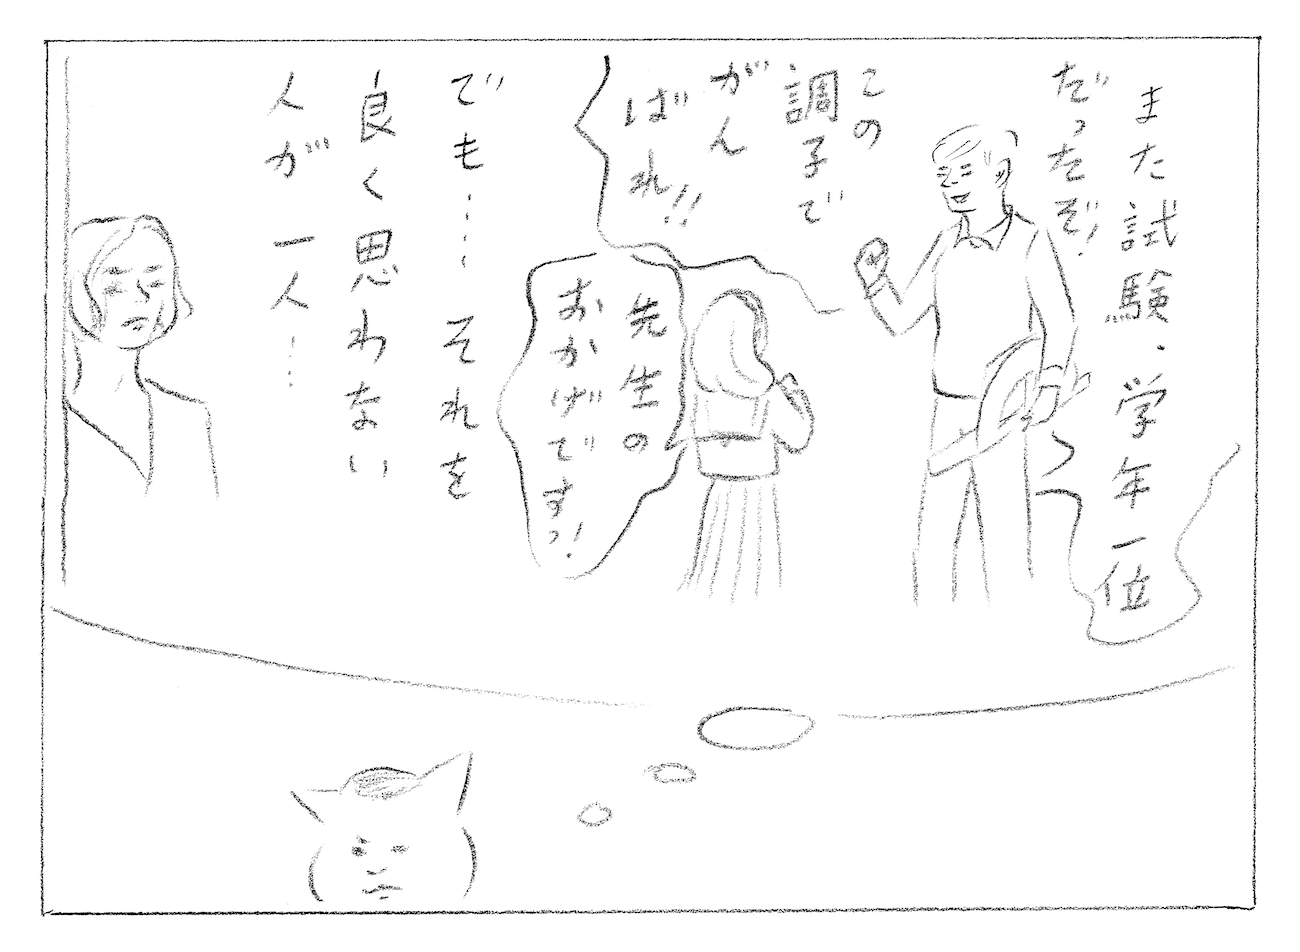 また試験、学年一位
だったぞ!
この
調子で
がん
ばれ!!
先生の
おかげですっ!
でも……それを
良く思わない
人が一人…